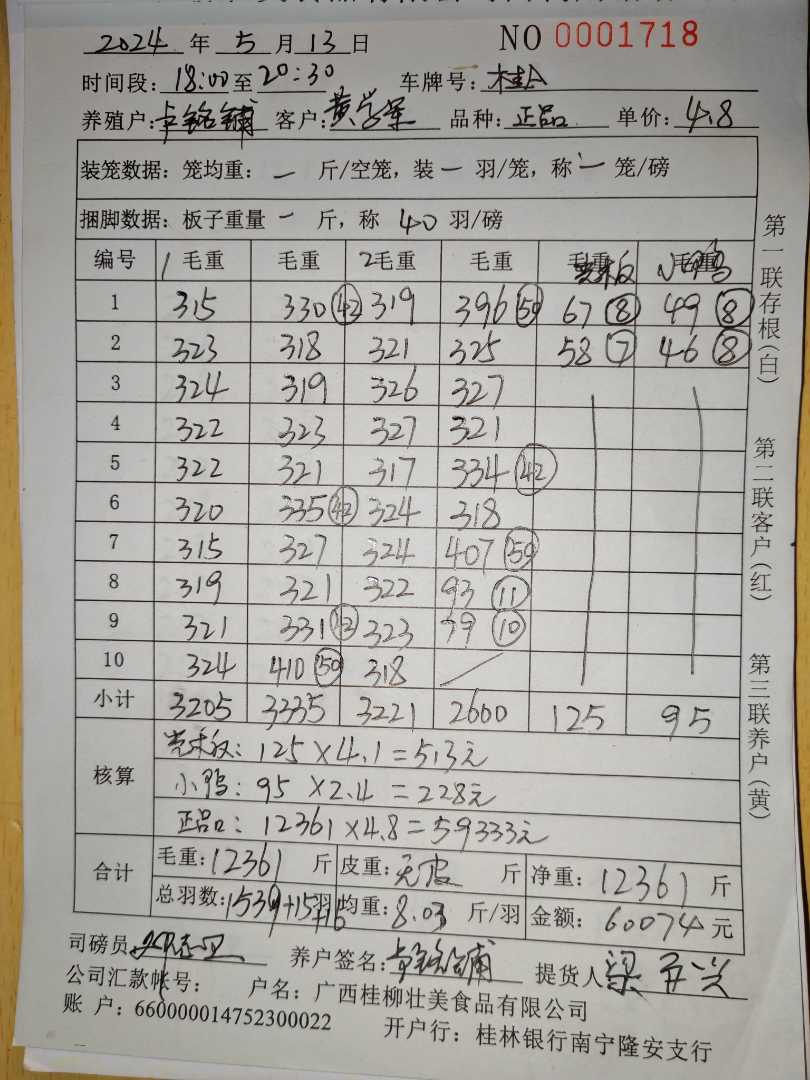 2024 年 5 月 13 日 NO 0001718
时间段: 18:00 至 20:30 车牌号: 桂A
养殖户: 卓铭铺 客户: 黄学军 品种: 正品 单价: 4.8
装笼数据: 笼均重: 一 斤/空笼, 装 一 羽/笼, 称 一 笼/磅
捆脚数据: 板子重量 一 斤, 称 40 羽/磅
编号 1 毛重 毛重 2 毛重 毛重 毛重 毛重
1 315 330 (42) 319 396 (50) 67 (8) 49 (8)
2 323 318 321 325 58 (7) 46 (8)
3 324 319 326 327
4 322 323 327 321
5 322 321 317 334 (42)
6 320 335 (42) 324 318
7 315 327 324 407 (50)
8 319 321 322 93 (11)
9 321 331 (42) 323 79 (10)
10 324 410 (50) 318 /
小计 3205 3335 3221 2600 125 95
核算
125 × 4.1 = 513元
小鸭: 95 × 2.4 = 228元
正品: 12361 × 4.8 = 59333元
合计 毛重: 12361 斤 皮重: 无皮 斤 净重: 12361 斤
总羽数: 1539+15+16 羽 均重: 8.03 斤/羽 金额: 60074 元
司磅员 养户签名: 卓铭铺 提货人
公司汇款帐号: 户名: 广西桂柳壮美食品有限公司
账 户: 660000014752300022 开户行: 桂林银行南宁隆安支行
第一联存根(白)
第二联客户(红)
第三联养户(黄)